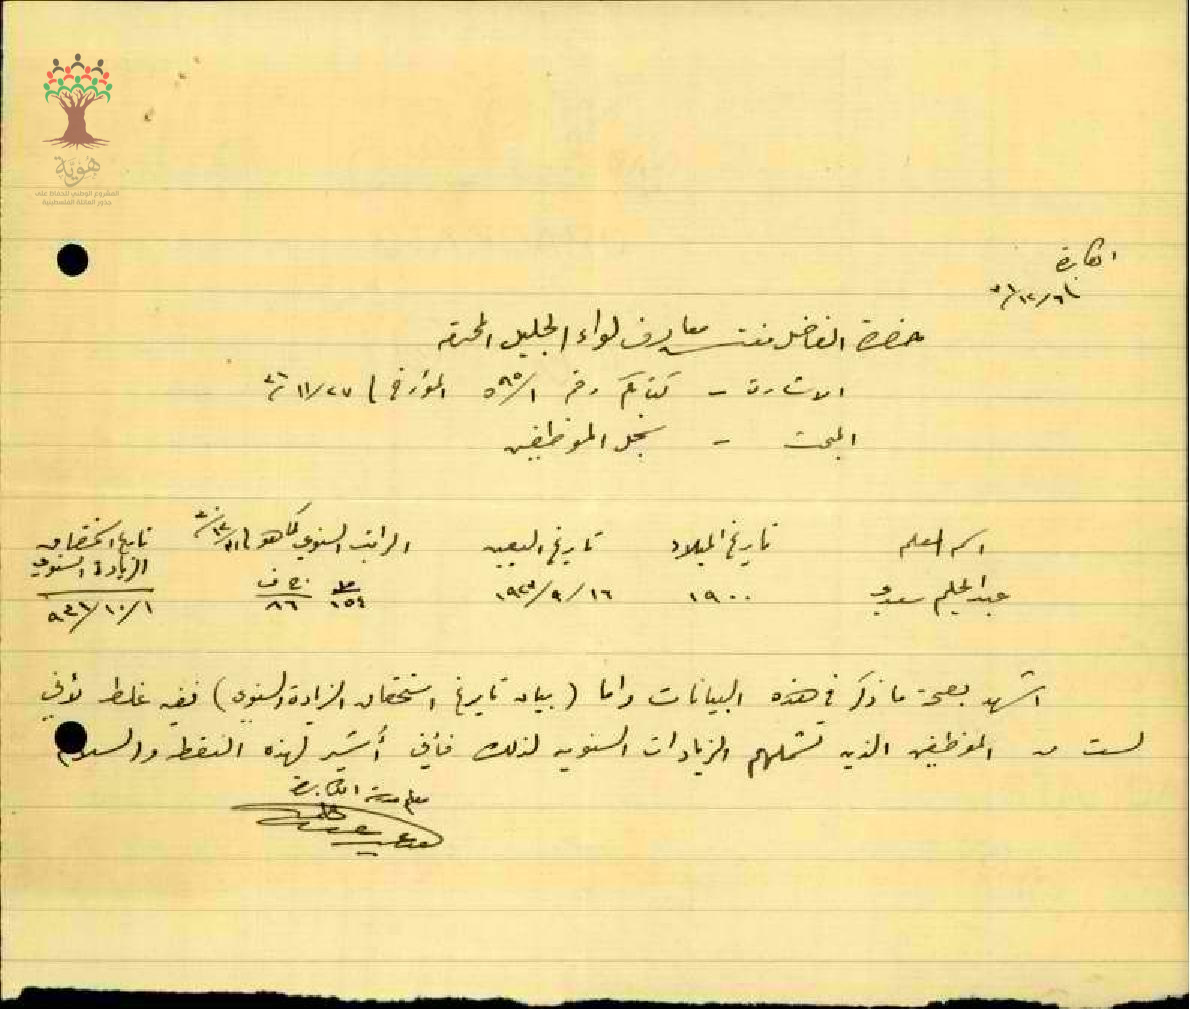 هوية
المشروع الوطني للحفاظ على
جذور العائلة الفلسطينية
حضرة الفاضل مفتش معارف لواء الجليل المحترم
الاشارة - كتابكم رقم ٥٩٥/١ المؤرخ في ٢٧/١١/
المبحث - سجل الموظفين
اسم المعلم تاريخ الميلاد تاريخ التعيين الراتب السنوي كما هو في تاريخ استحقاق
الزيادة السنوي
عبد الحليم سعدي ١٩٠٠ ١٦/٩/ ١٥٤ ٨٦ ١/١٠/٩٣٦
اشهد بصحة ما ذكر في هذه البيانات واما (بيان تاريخ استحقاق الزيادة السنوي) ففيه غلط لأني
لست من الموظفين الذين تشملهم الزيادات السنوية لذلك فأني أشير لهذه النقطة والسلام
معلم مدرسة